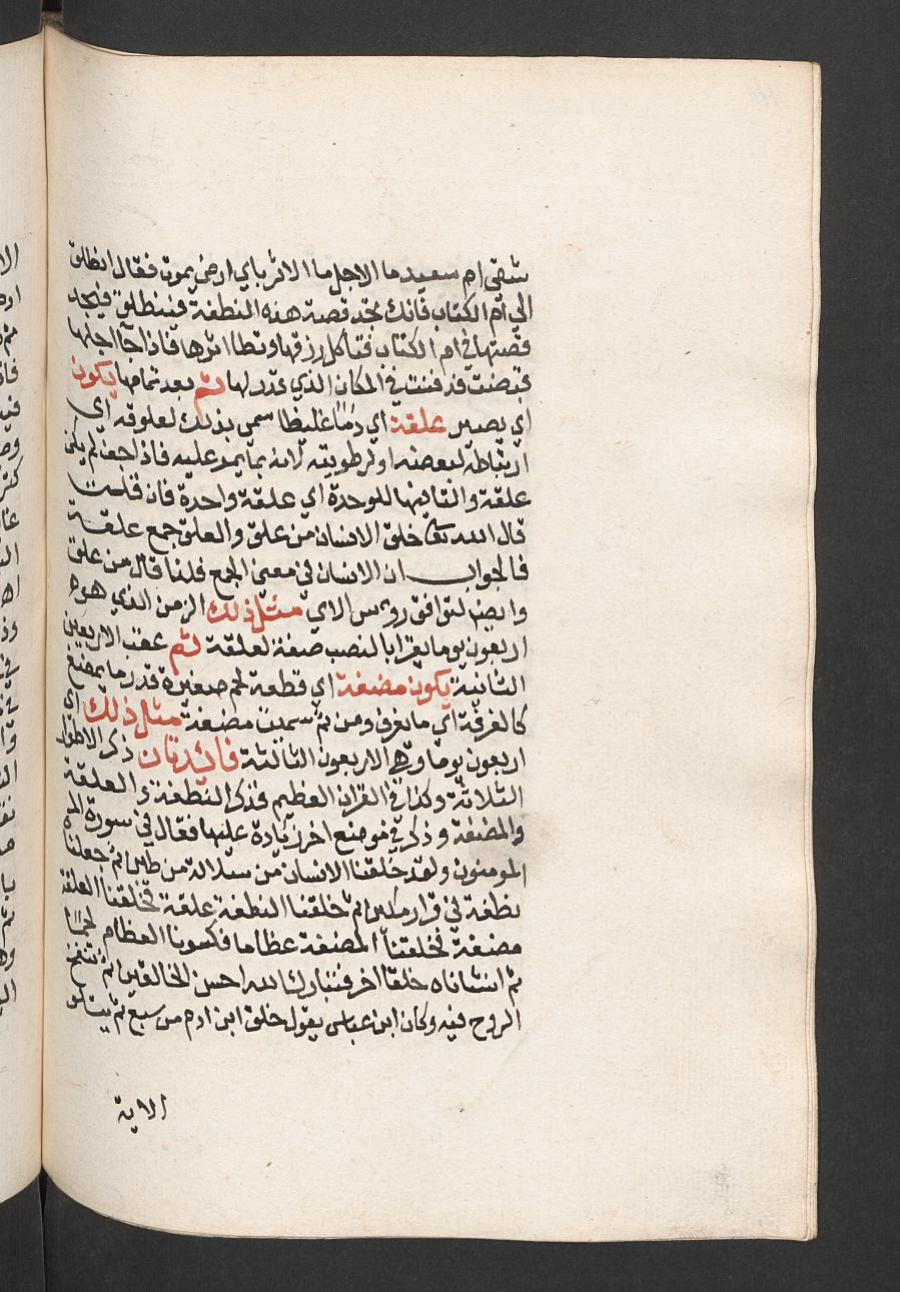 شقي ام سعيد ما الاجل ما الاثر باي ارض يموت فقال انطلق
الي ام الكتاب فانك تجد قصة هذه النطفة فينطلق فيجد
قصتها في ام الكتاب فتاكل رزقها وتطا اثرها فاذا جا اجلها
قبضت فدفنت في المكان الذي قدر لها ثم بعد تمامها يكون
اي يصير علقة اي دما غليظا سمي بذلك لعلوقه اي
ارتباطه لبعضه او لرطوبته لانه بما يمر عليه فاذا جف لم يكن
علقة والتا فيها للوحدة اي علقة واحدة فان قلت
قال الله تعالى خلق الانسان من علق والعلق جمع علقة
فالجواب ان الانسان في معني الجمع فلذا قال من علق
وايضا لتوافق روس الاي مثل ذلك الزمن الذي هو
اربعون يوما يقرا بالنصب صفة لعلقة ثم عقب الاربعين
الثانية يكون مضغة اي قطعة لحم صغيرة قدر ما يمضغ
كالغرفة اي ما يغرف ومن ثم سميت مضغة مثل ذلك اي
اربعون يوما وهي الاربعون الثالثة فائدتان ذكر الاطوار
الثلاثة وكذا في القران العظيم فذكر النطفة والعلقة
والمضغة وذكر في موضع اخر زيادة عليها فقال في سورة
المومنون ولقد خلقنا الانسان من سلالة من طين ثم جعلناه
نطفة في قرار مكين ثم خلقنا النطفة علقة فخلقنا العلقة
مضغة فخلقنا المضغة عظاما فكسونا العظام لحما
ثم انشاناه خلقا اخر فتبارك الله احسن الخالقين ثم تنفخ
الروح فيه وكان ابن عباس يقول خلق ابن ادم من سبع ثم يتلو
الاية